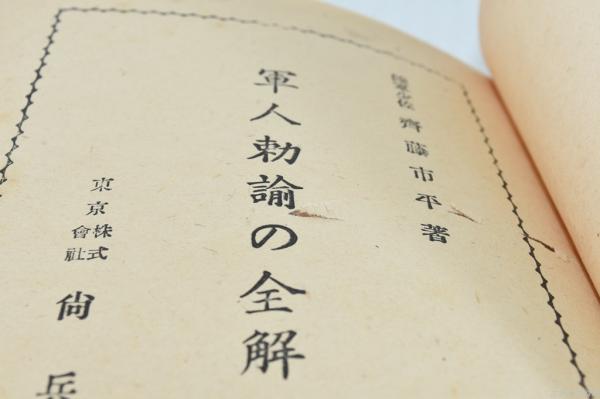 陸軍少佐 齊藤市平著
軍人勅諭の全解
東京 株式會社 尙兵